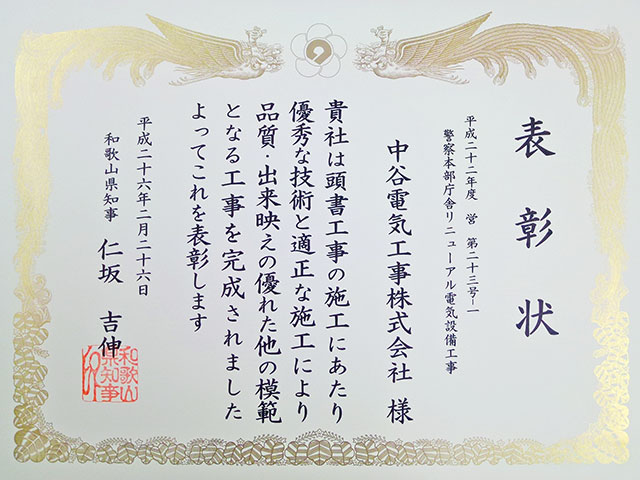 表彰状
平成二十二年度 営 第二十三号-一
警察本部庁舎リニューアル電気設備工事
中谷電気工事株式会社 様
貴社は頭書工事の施工にあたり
優秀な技術と適正な施工により
品質・出来映えの優れた他の模範
となる工事を完成されました
よってこれを表彰します
平成二十六年二月二十六日
和歌山県知事 仁坂 吉伸
和歌山
県知事
印